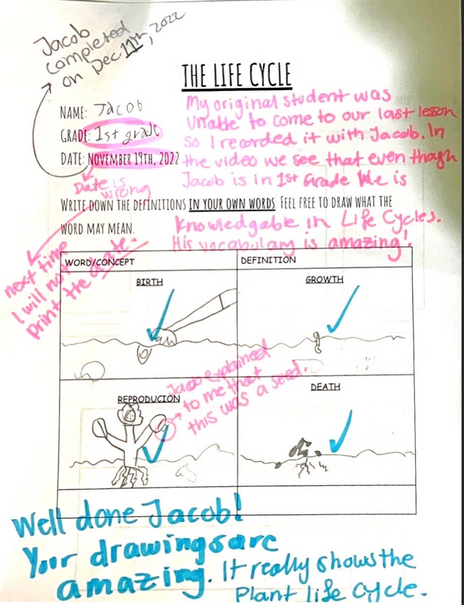 Jacob
completed
on Dec 11th, 2022
THE LIFE CYCLE
NAME: Jacob
GRADE: 1st grade
DATE: NOVEMBER 19TH, 2022
My original student was
unable to come to our last lesson
so I recorded it with Jacob. In
the video we see that even though
Jacob is in 1st Grade He is
Knowledgable in Life Cycles.
His vocabulary is amazing!
Date is
wrong
next time
I will not
print the date.
WRITE DOWN THE DEFINITIONS IN YOUR OWN WORDS. FEEL FREE TO DRAW WHAT THE
WORD MAY MEAN.
WORD/CONCEPT
DEFINITION
BIRTH
GROWTH
REPRODUCION
DEATH
Jacob explained
to me that
this was a seed.
Well done Jacob!
Your drawings are
amazing. It really shows the
Plant life Cycle.